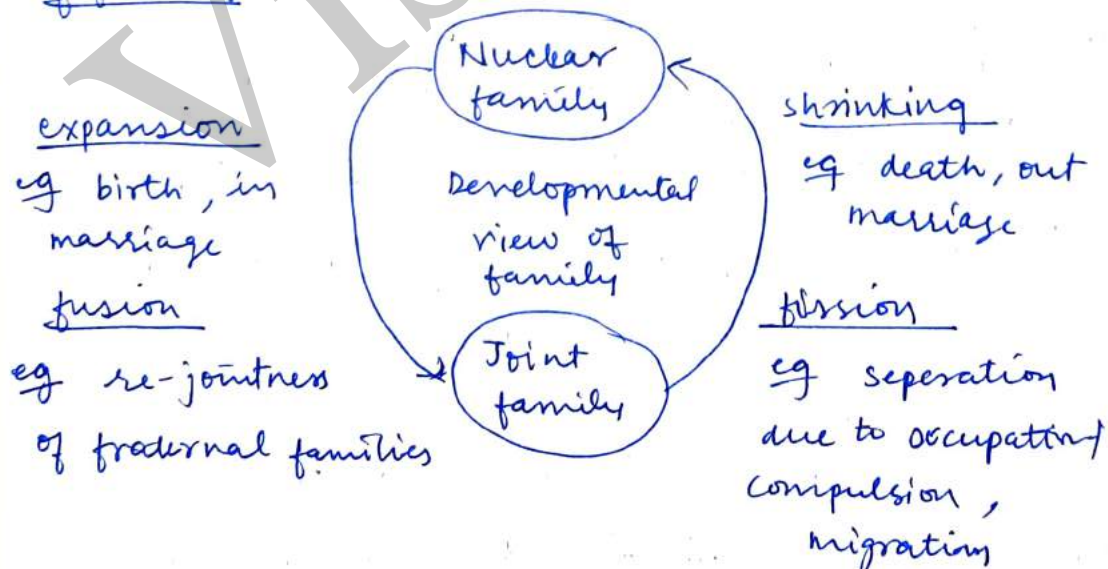 Nuclear
family
expansion
eg birth, in
marriage
fusion
eg re-jointness
of fraternal families
Developmental
view of
family
Joint
family
shrinking
eg death, out
marriage
fission
eg seperation
due to occupation/
compulsion,
migration